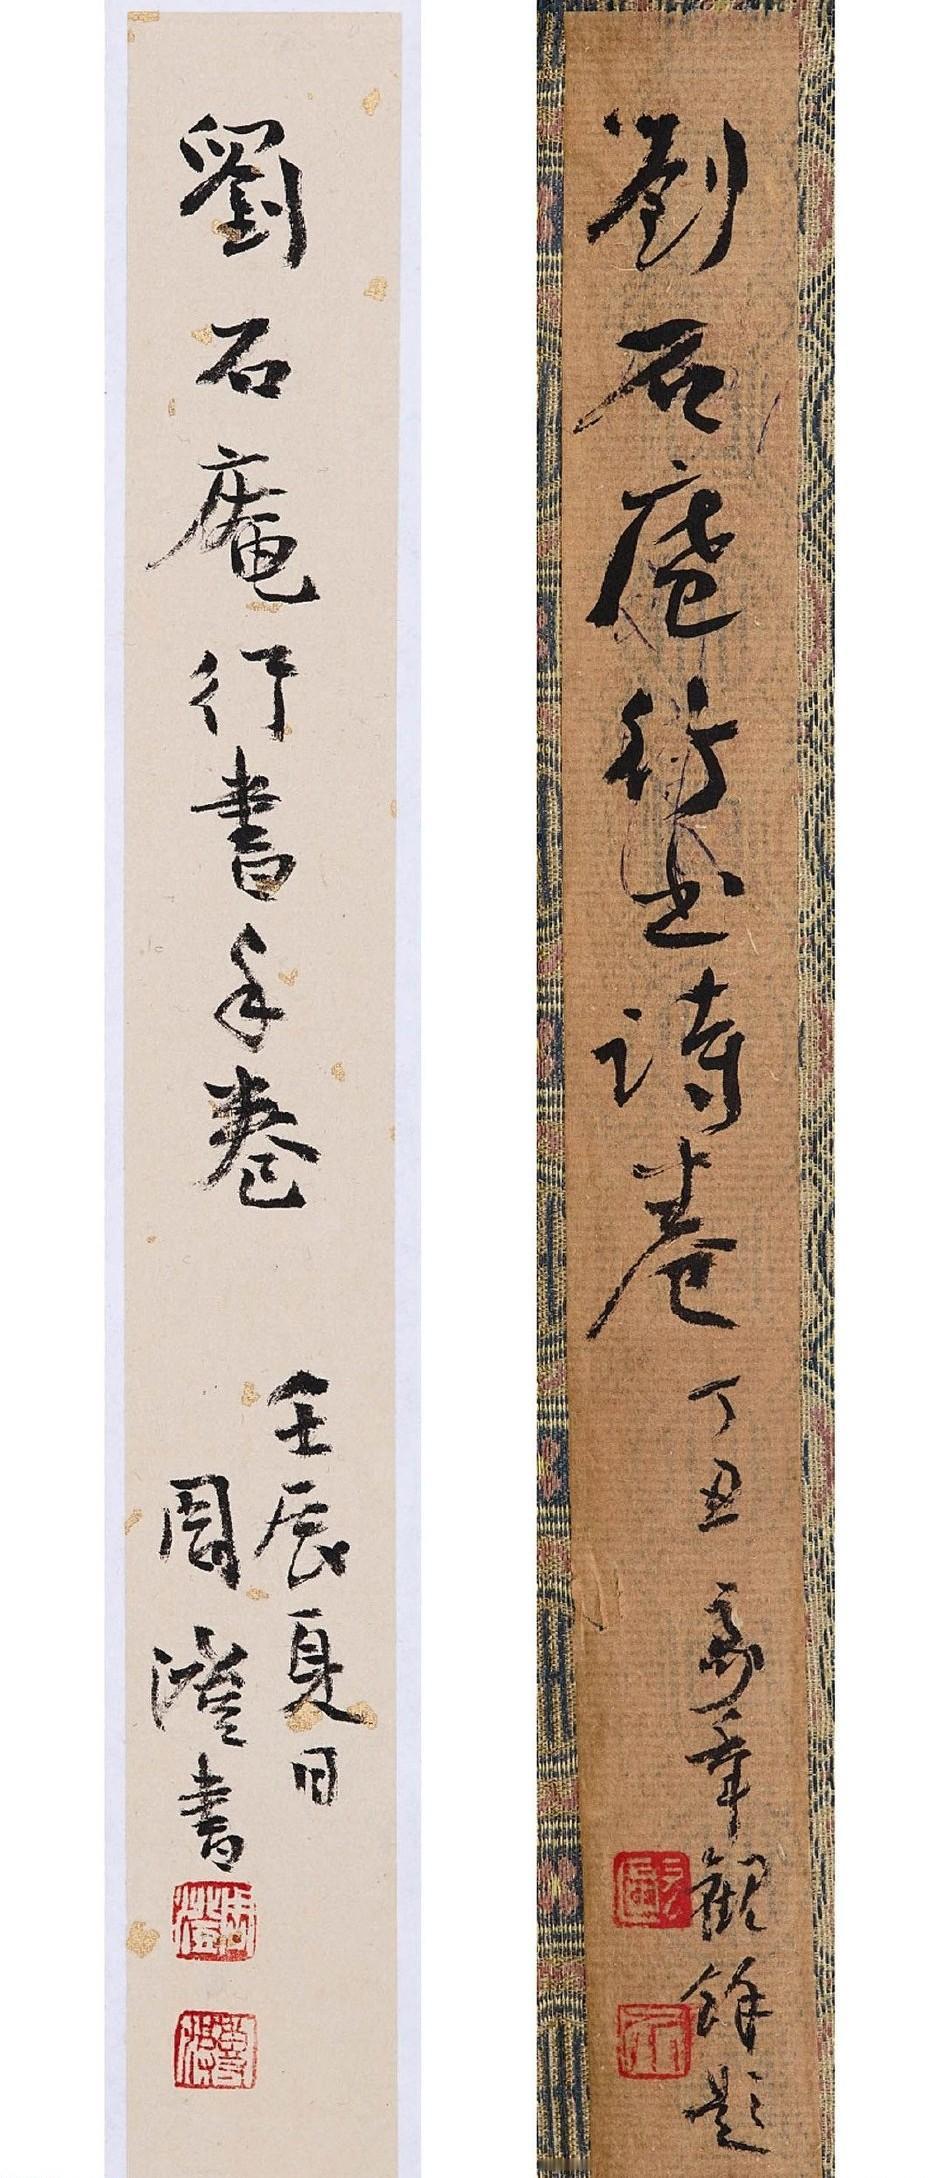 劉石庵行書手卷
壬辰夏日
周澄書
周澄
劉石庵行書詩卷
丁丑 嘉平 觀餘題